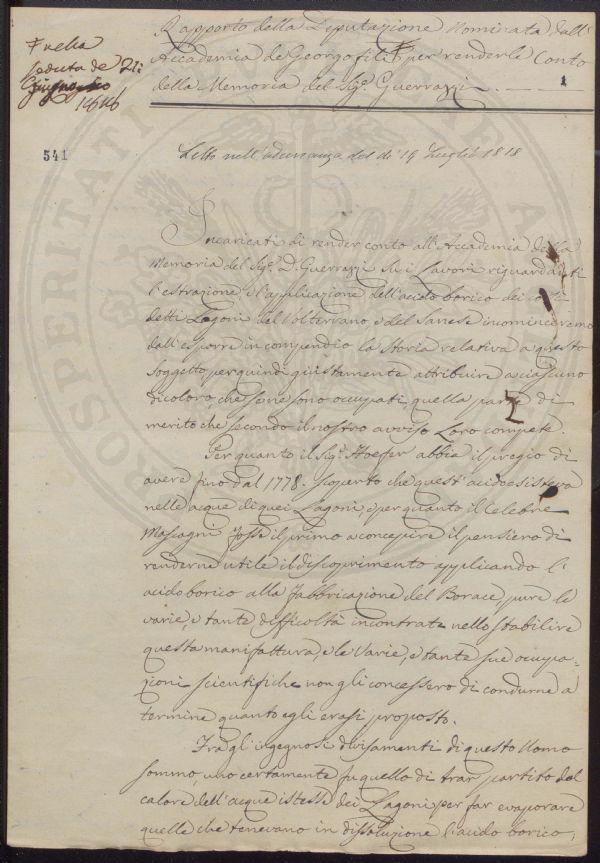 Rapporto della Deputazione Nominata dall'
Accademia de Georgofili per renderle Conto
della Memoria del Sig.r Guerrazzi.
1
seduta de 21:
541
Letto nell'adunanza del dì 19 Luglio 1818
Incaricati di render conto all'Accademia della
Memoria del Sig.r D. Guerrazzi su i lavori riguardanti
l'estrazione e l'applicazione dell'acido borico dei così
detti Lagoni del Volterrano, e del Sanese incominceremo
dall'esporre in compendio la Storia relativa a questo
soggetto per quindi giustamente attribuire a ciascuno
di coloro che se ne sono occupati quella parte di
merito che secondo il nostro avviso Loro compete.
Per quanto il Sig.r Hoefer abbia il pregio di
avere fino dal 1778. scoperto che quest'acido esisteva
nelle acque di quei Lagoni, e per quanto il celebre
Mascagni fosse il primo a concepire il pensiero di
renderne utile il discoprimento applicando l'
acido borico alla fabbricazione del Borace, pure le
varie, e tante difficoltà incontrate nello stabilire
questa manifattura, e le varie, e tante sue occupa-
zioni scientifiche non gli concessero di condurne a
termine quanto egli erasi proposto.
Tra gl'ingegnosi divisamenti di questo Uomo
sommo, uno certamente fu quello di trar partito dal
calore dell'acque istesse dei Lagoni per far evaporare
quelle che tenevano in dissoluzione l'acido borico,